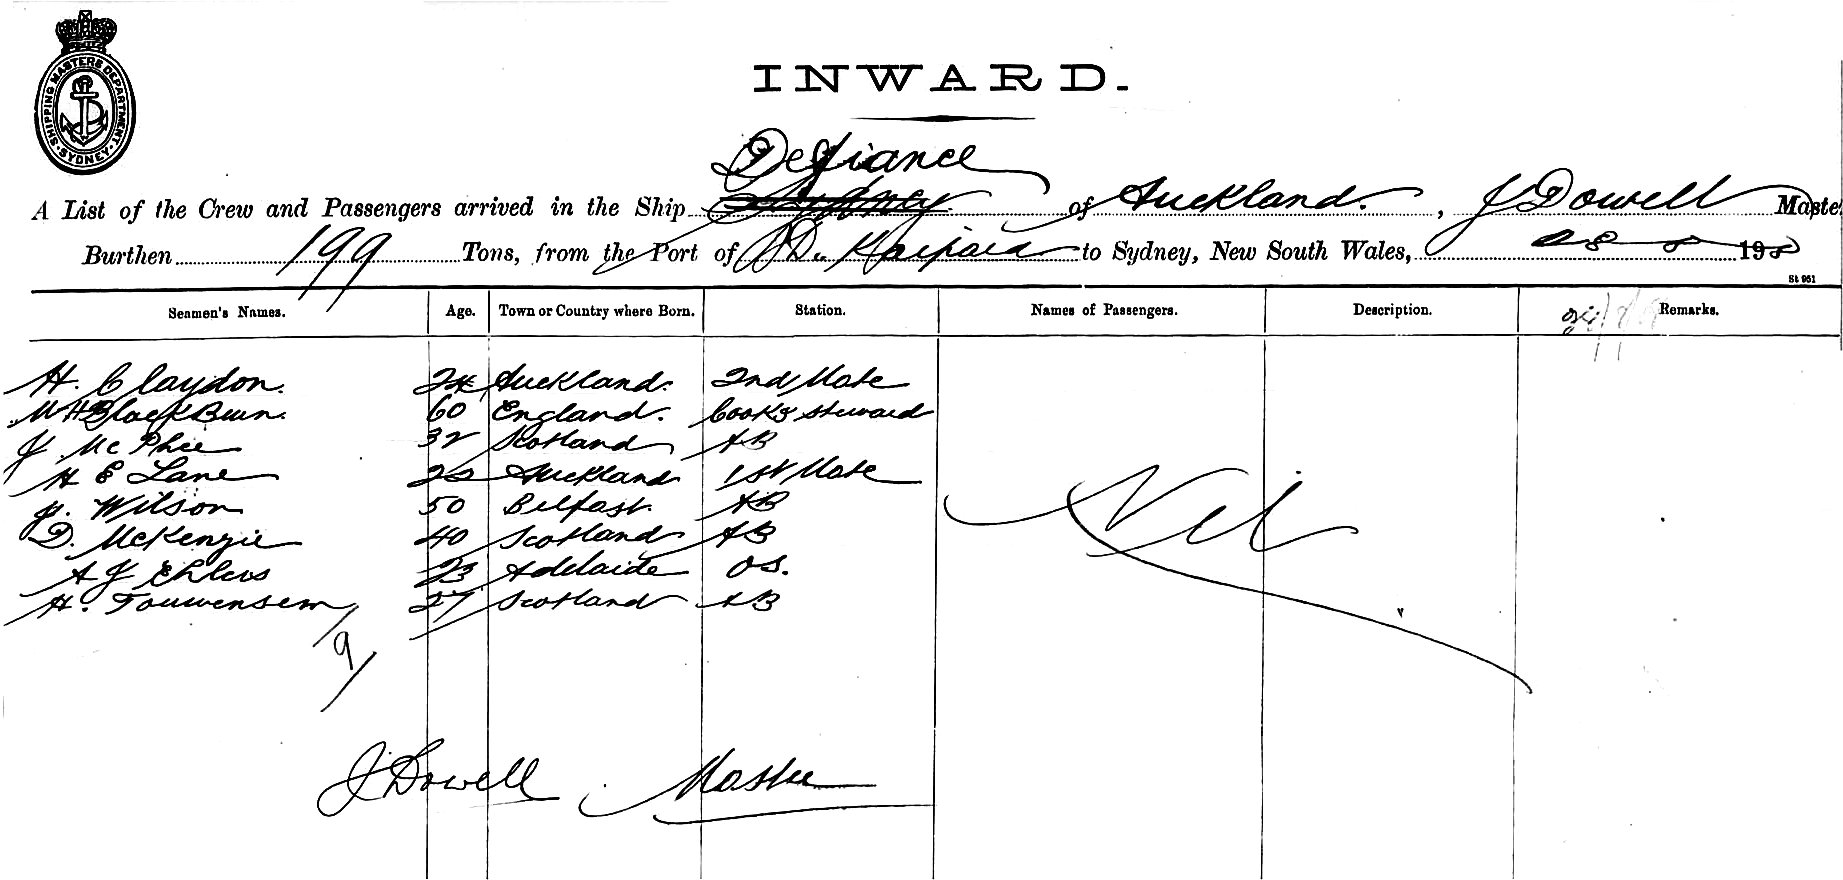 SHIPPING MASTERS DEPARTMENT
SYDNEY
INWARD.
Defiance
A List of the Crew and Passengers arrived in the Ship Sydney of Auckland. , J Dowell Maste
Burthen 199 Tons, from the Port of Kaipara to Sydney, New South Wales, 19
St 951
Seamen's Names. Age. Town or Country where Born. Station. Names of Passengers. Description. Remarks.
H. Claydon. Auckland. 2nd Mate
W H BlackBurn. 60 England. Cook & Steward
J McPhee 32 Scotland AB
H E Lane Auckland 1st Mate
J. Wilson 50 Belfast. AB
D. McKenzie 40 Scotland AB
A J Ehlers 23 Adelaide OS.
H. 27 Scotland AB
Nil
9
J Dowell Master